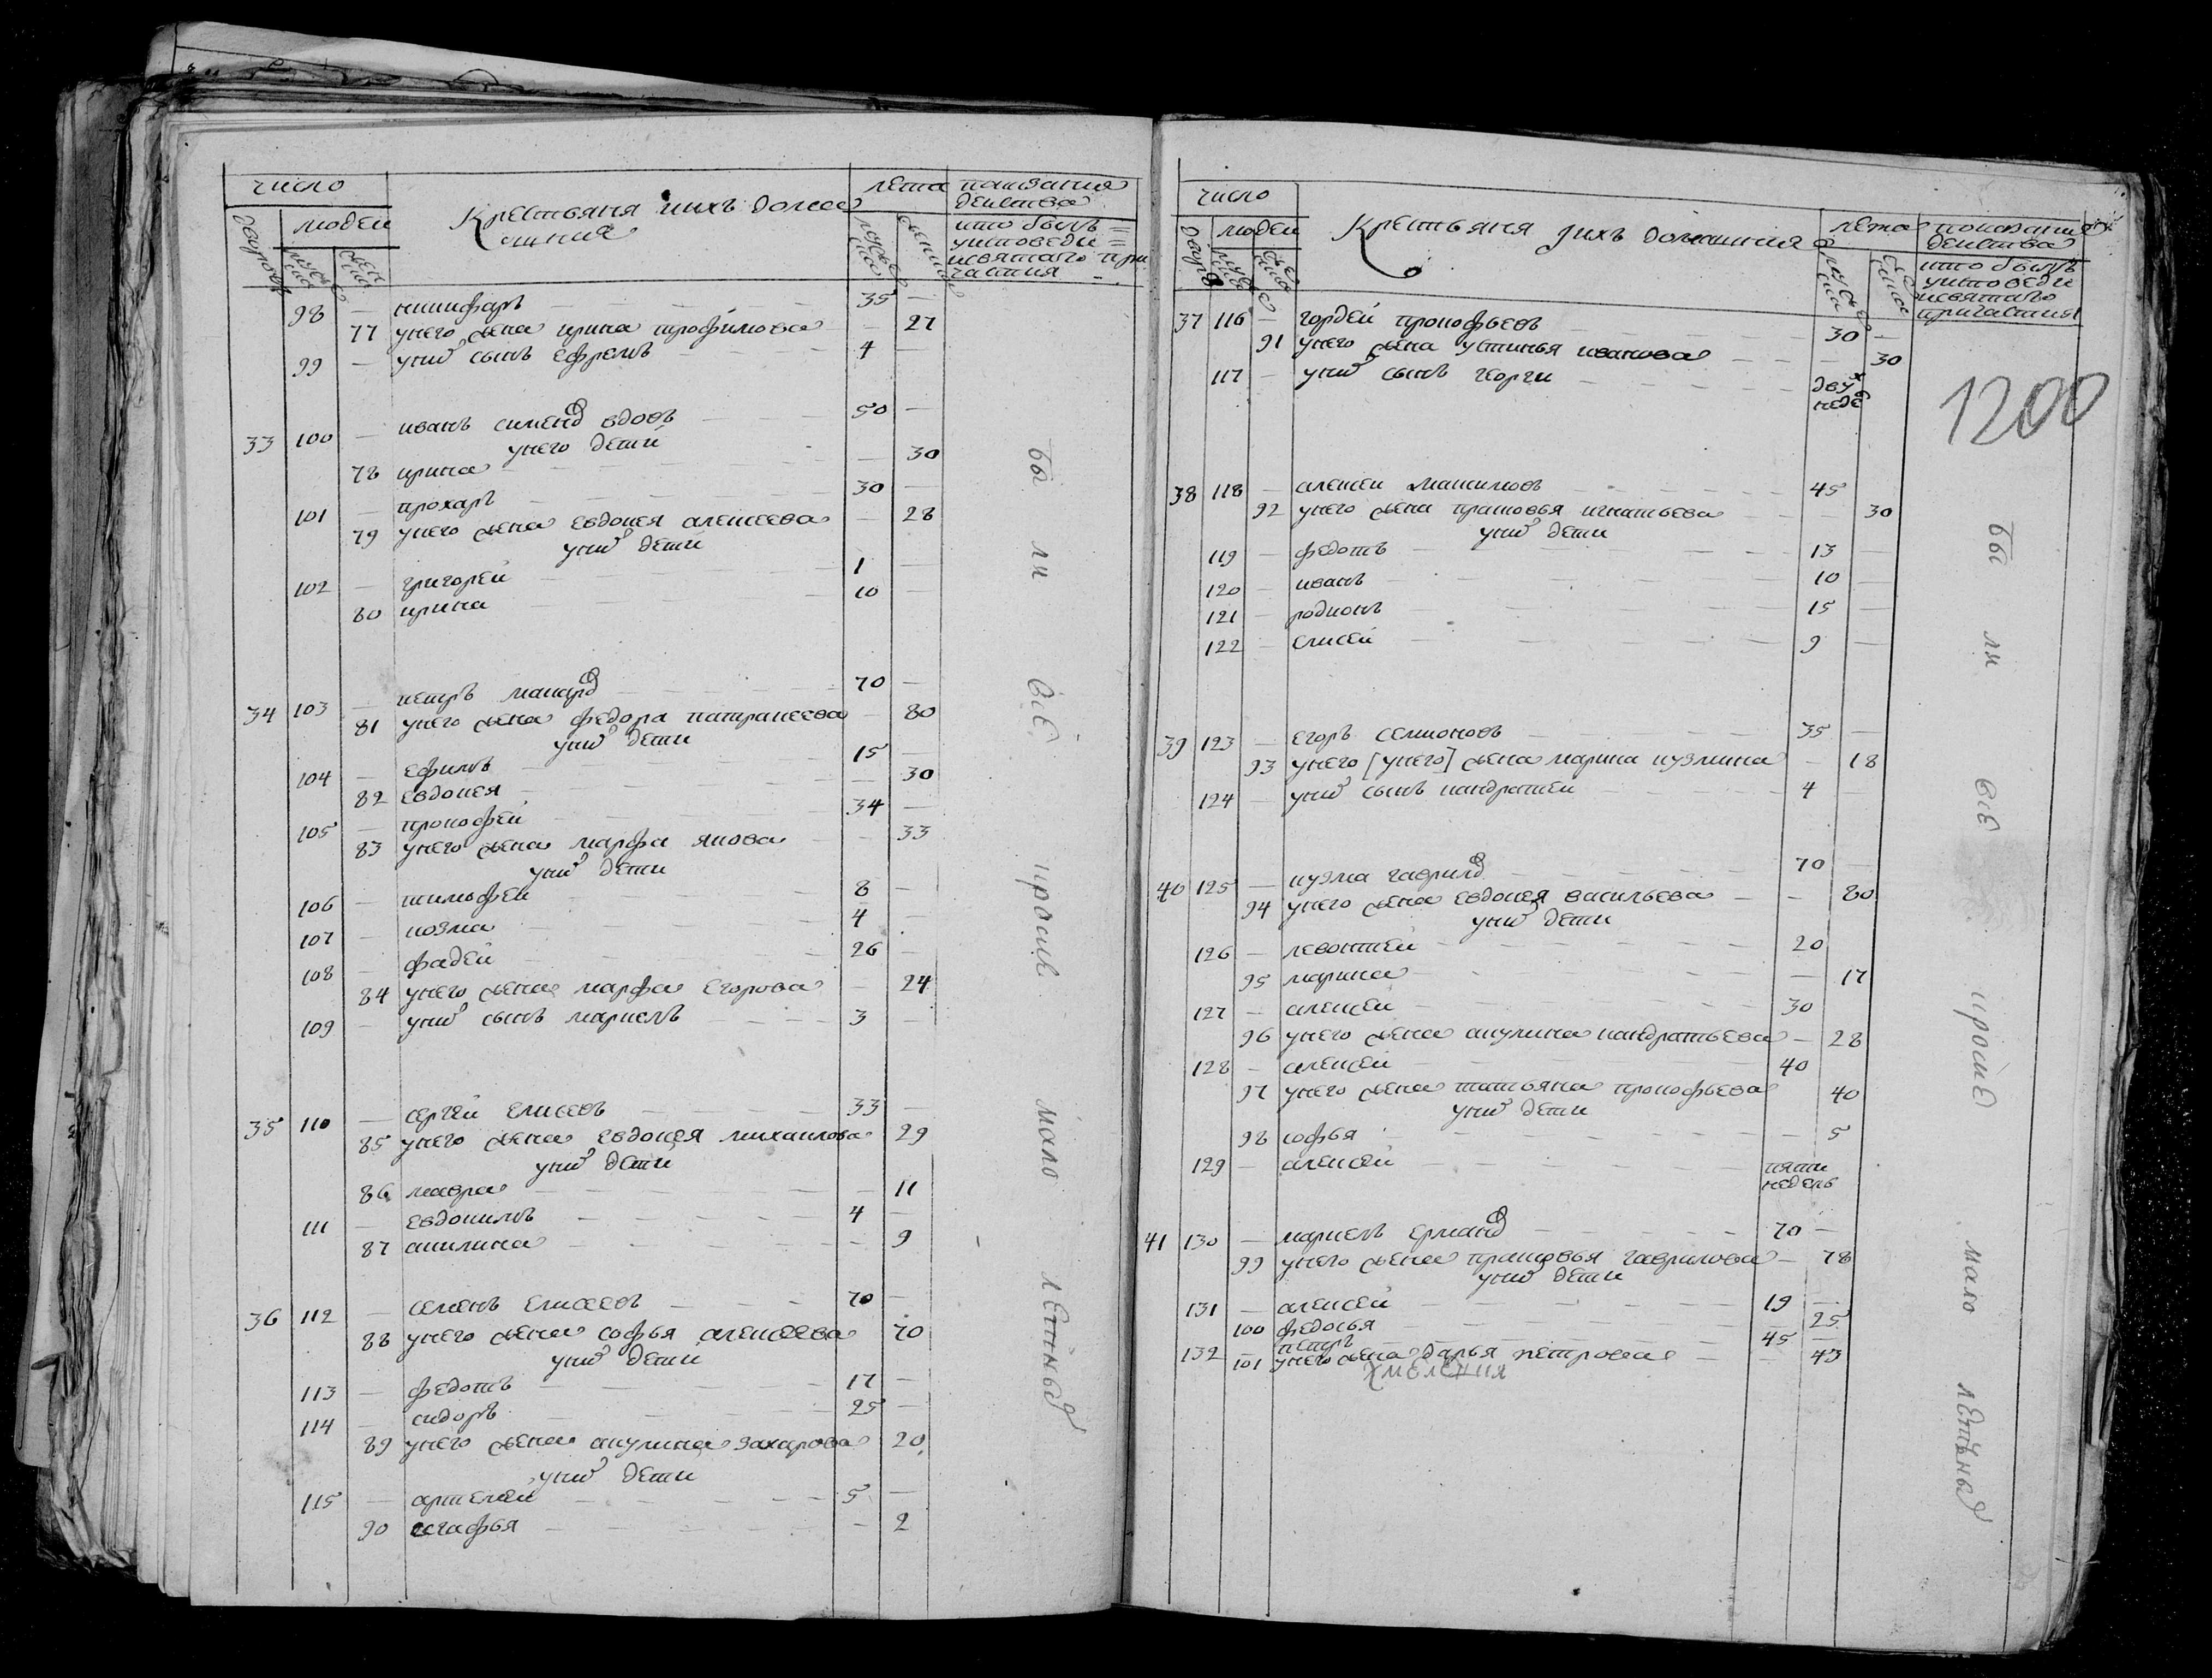 число
Крестьяня ихъ дома
шния
лета
показания
действа
дворовъ
людей
кто былъ =
у исповеди =
и святаго при
частия
98 — никифаръ — 35 —
77 у него жена ирина трофимова — 27
99 — у них сынъ ефремъ — 4 —
33 100 — иванъ симено вдовъ — 50 —
у него дети
78 ирина — 30
101 — прохаръ — 30 —
79 у него жена евдокея алексеева — 28
у них дети
102 — григорей — 1 —
80 ирина — 10 —
34 103 — петръ макаро — 70 —
81 у него жена федора патракеева — 80
у них дети
104 — ефимъ — 15 —
82 евдокея — 30
105 — прокофей — 34 —
83 у него жена марфа якова — 33
у них дети
106 — тимофей — 8 —
107 — козма — 4 —
108 — фадей — 26 —
84 у него жена марфа егорова — 24
109 — у них сынъ маркелъ — 3 —
35 110 — сергей елисеевъ — 33 —
85 у него жена евдокея михаилова 29
у них дети
86 мавра — 11
111 — евдокимъ — 4 —
87 акилина — 9
36 112 — семенъ елисеевъ — 70 —
88 у него жена софья алексеева 70
у них дети
113 — федотъ — 17 —
114 — сидоръ — 25 —
89 у него жена акулина захарова 20
у них дети
115 — артемей — 5 —
90 агафья — 2
бы ли все кроме мало летных
число
Крестьяня и ихъ домашния
лета
показания
действа
дворовъ
людей
кто былъ
у исповеди
и святаго
причастия
37 116 — гордей прокофьевъ — 30 —
91 у него жена устинья иванова — 30
117 — у них сынъ георги — двух
неде
1200
38 118 — алексей макимовъ — 45
92 у него жена прасковья игнатьева 30
у них дети
119 — федотъ — 13 —
120 — иванъ — 10 —
121 — родионъ — 15 —
122 — елисей — 9 —
39 123 — егоръ семионовъ — 35 —
93 у него [у него] жена марина кузмина — 18
124 — у них сынъ кандратей — 4 —
40 125 — кузма гаврило — 70 —
94 у него жена евдокея васильева — 80
у них дети
126 — левонтей — 20
95 марина — 17
127 — алексей — 30
96 у него жена акулина кандратьева — 28
128 — алексей — 40
97 у него жена татьяна прокофьева 40
у них дети
98 софья — 5
129 — алексей — пяти
недель
41 130 — маркелъ ермако — 70 —
99 у него жена прасковья гаврилова — 78
у них дети
131 — алексей — 19 —
100 федосья — 25
132 — петръ — 45 —
101 у него жена дарья петрова — 43
бы ли все кроме мало летных